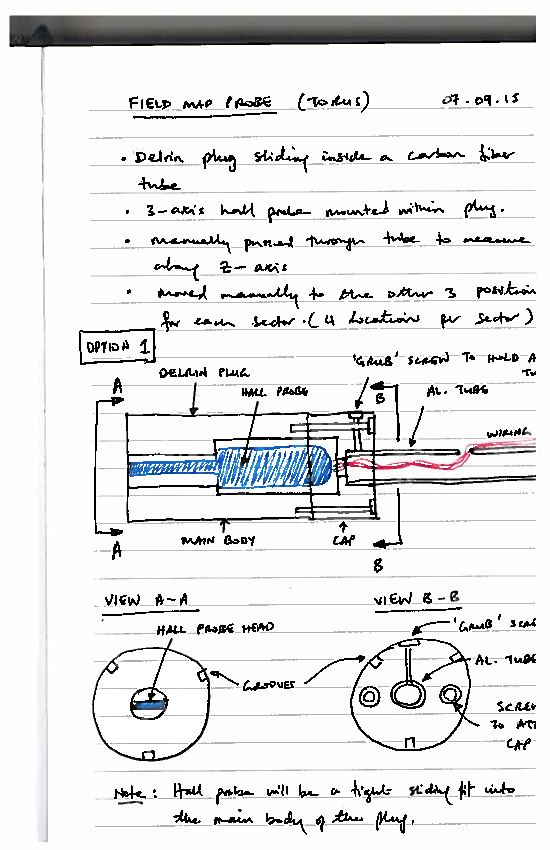 FIELD MAP PROBE (TORUS) 07.09.15
• Delrin plug sliding inside a carbon fiber
tube
• 3-axis hall probe mounted within plug.
• manually pushed through tube to measure
along Z-axis
• moved manually to the other 3 position
for each sector. (4 locations per sector)
OPTION 1
'GRUB' SCREW TO HOLD A
TU
DELRIN PLUG
A
HALL PROBE
B
AL. TUBE
WIRING
A
MAIN BODY
CAP
B
VIEW A-A
VIEW B-B
HALL PROBE HEAD
'GRUB' SCRE
GROOVES
AL. TUBE
SCREW
TO ATT
CAP
Note: Hall probe will be a tight sliding fit into
the main body of the plug.